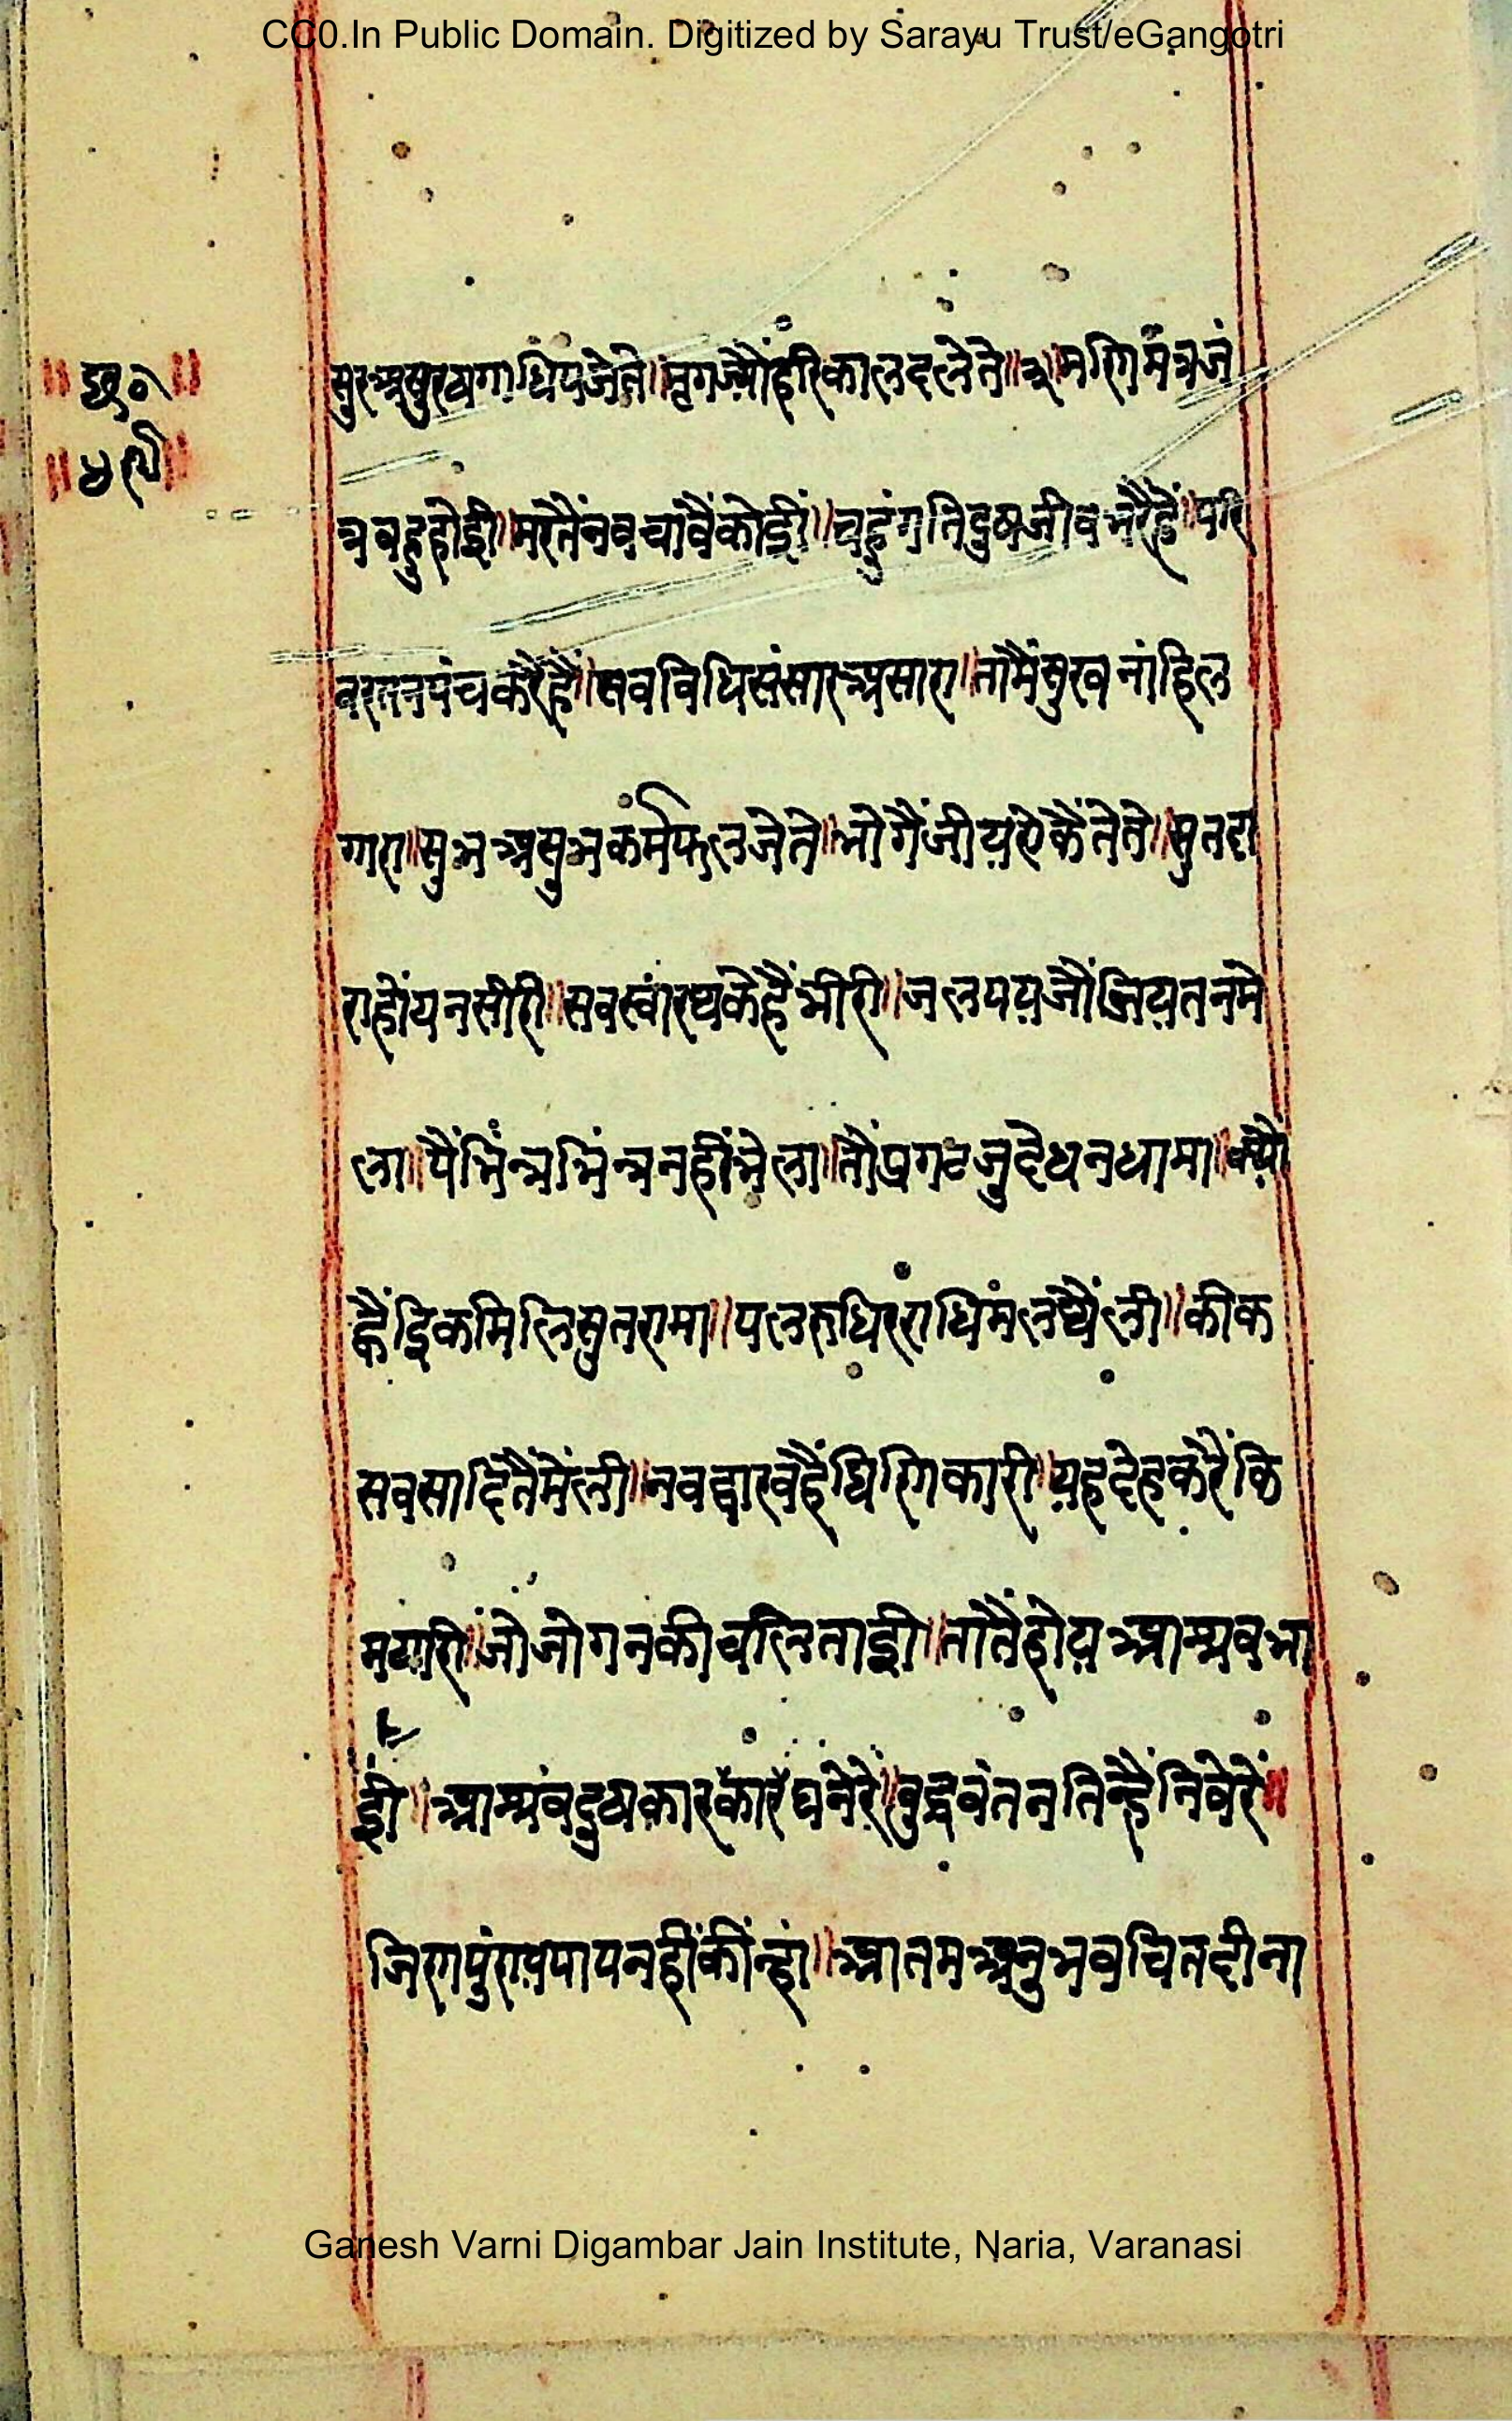 CC0.In Public Domain. Digitized by Sarayu Trust/eGangotri
सुरअसुरषगाधिपजेते॥मृगज्यौंहरिकालदलेते॥ मणिमंत्रजं
त्रबहुहोई॥मरतैंनवचावैंकोई॥चहुंगतिदुषजीवभरैंहैं॥परि
वरतनपंचकरैंहैं॥सवविधिसंसारअसारा॥तामैंसुखनांहिल
गारा॥सुभअसुभकर्मफलजेते॥भोगैंजीयऐकैंतेते॥सुतदा
राहोंयनसीरी॥सवस्वांरथकेहैंभीरी॥जलपयज्यौंजियतनमे
ला॥पैंभिंन्नभिंन्ननहींभेला॥तौंप्रगटजुदेधनधामा॥क्यौं
ह्वैंइिकमिलिसुतरामा॥पलरुधिरराधिमंलथैंली॥कीक
सवसादितैंमेंली॥नवद्वारवहैंघिणिकारी॥यहदेहकरैंकि
मयारी॥जोजोगनकीचलिताई॥तातैंहोयआश्रवभा
ई॥आश्रंवदुषकारघनेरे॥बुद्धवंतनतिन्हैंनिवेरें॥
जिणपुंणपापनहींकींन्हां॥आतमअनुभवचितदीना
Ganesh Varni Digambar Jain Institute, Naria, Varanasi